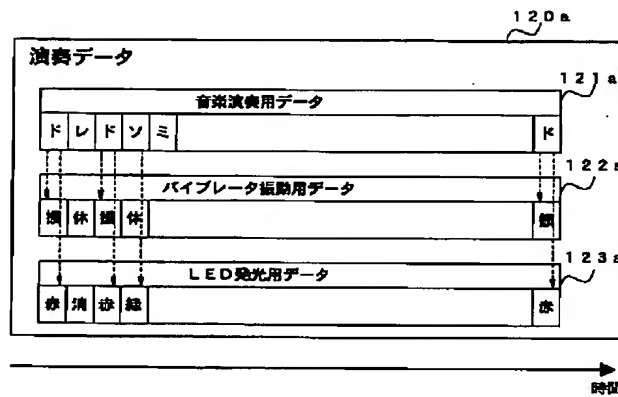 120a
演奏データ
121a
音楽演奏用データ
ド レ ド ソ ミ ド
122a
バイブレータ振動用データ
振 休 振 休 振
123a
LED発光用データ
赤 消 赤 緑 赤
時間